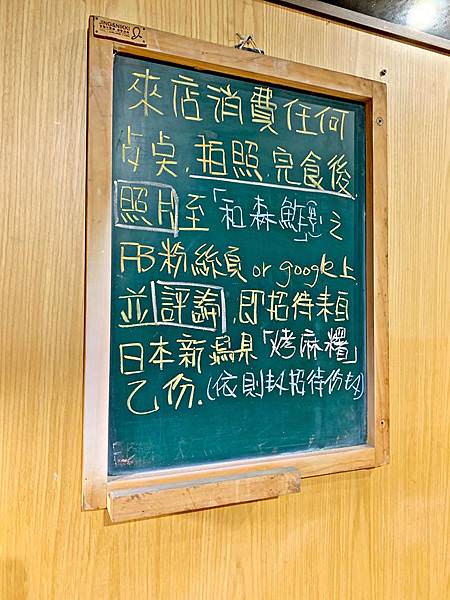 JING&NIKKI
來店消費任何
餐桌,拍照,完食後
照片至「和森鮓」之
FB粉絲頁 or google上
並評論,即招待來自
日本新潟県「烤麻糬」
乙份.(依則数招待份数)